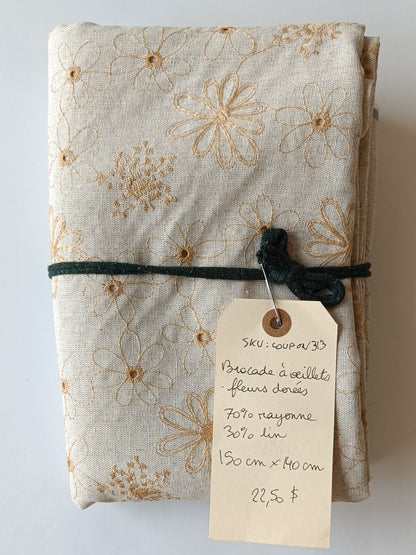 SKU: COUPON313
Brocade à œillets
. fleurs dorées
70% rayonne
30% lin
150 cm x 140 cm
22,50 $